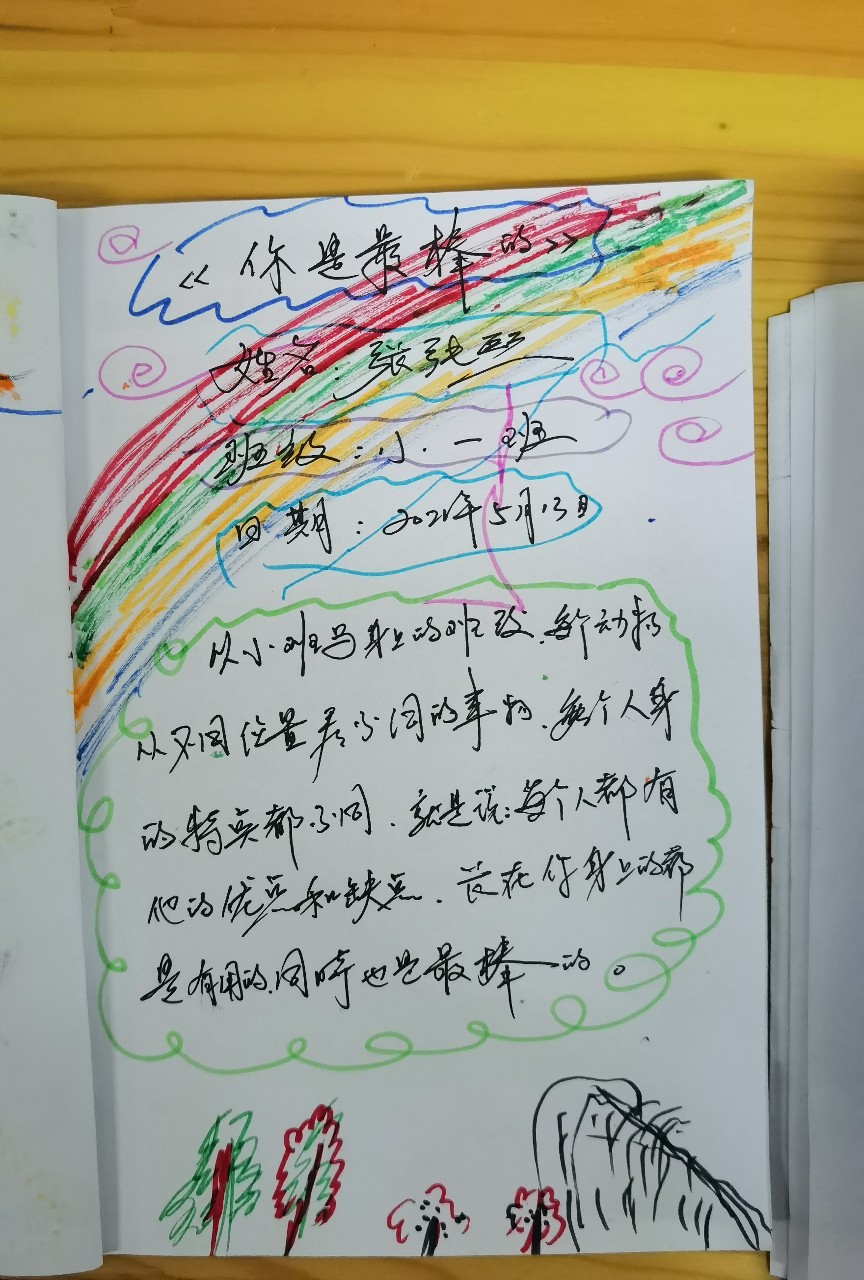 《你是最棒的》
姓名：张弛
班级：小一班
日期：2021年5月13日
从小斑马身上的斑纹，每个动物
从不同位置看不同的事物，每个人身
的特点都不同，就是说：每个人都有
他的优点和缺点，长在你身上的都
是有用的，同时也是最棒的。